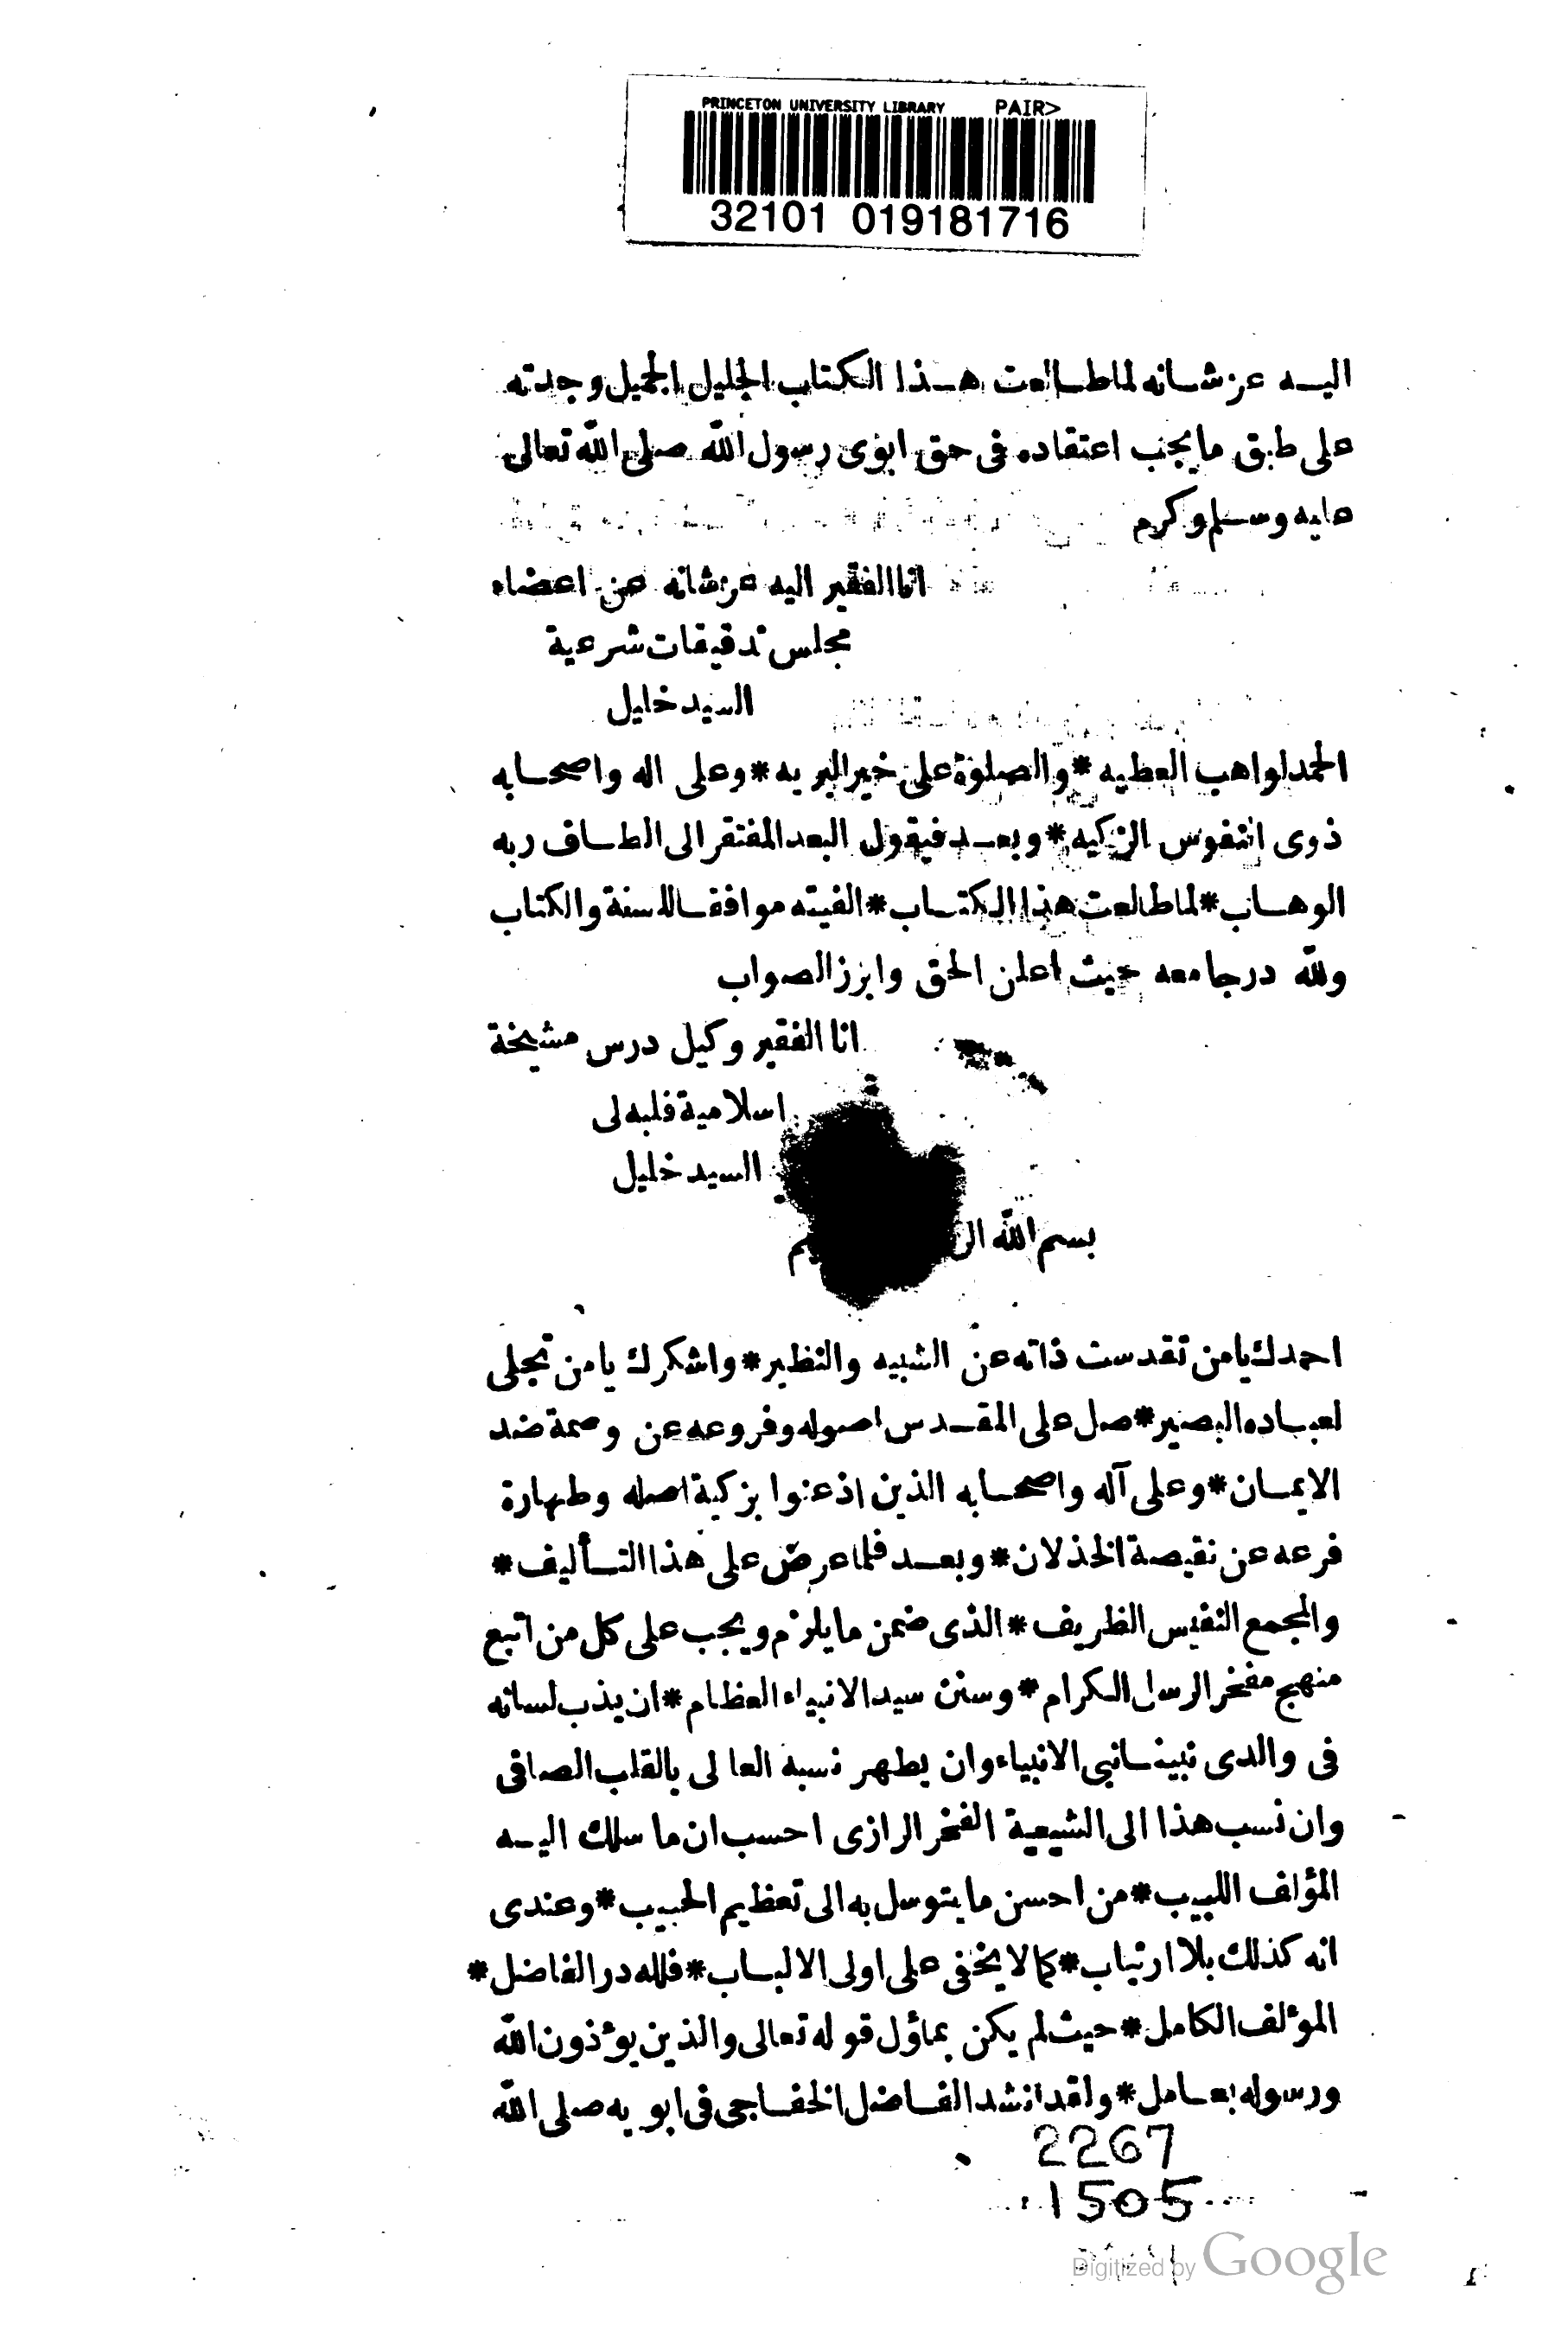 PRINCETON UNIVERSITY LIBRARY PAIR>
32101 019181716
اليه عز شانه لما طالعت هذا الكتاب الجليل الجميل وجدته
على طبق ما يجب اعتقاده فى حق ابوى رسول الله صلى الله تعالى
عليه وسلم وكرم
انا الفقير اليه عز شانه عن اعضاء
مجلس تدقيقات شرعية
السيد خليل
الحمد لواهب العطيه * والصلوة على خير البريه * وعلى اله واصحابه
ذوى النفوس الزكيه * وبعد فيقول البعد المفتقر الى الطاف ربه
الوهاب * لما طالعت هذا الكتاب * الفيته موافقا للسنة والكتاب
ولله در جامعه حيث اعلن الحق وابرز الصواب
انا الفقير وكيل درس مشيخة
اسلامية فلبه لى
السيد خليل
بسم الله الر يم
احمدك يا من تقدست ذاته عن الشبيه والنظير * واشكرك يا من تجلى
لعباده البصير * صل على المقدس اصوله وفروعه عن وصمة ضد
الايمان * وعلى آله واصحابه الذين اذعنوا بزكية اصله وطهارة
فرعه عن نقيصة الخذلان * وبعد فلما عرض على هذا التأليف *
والمجمع النفيس الظريف * الذى ضمن ما يلزم ويجب على كل من اتبع
منهج مفخر الرسل الكرام * وسنن سيد الانبياء العظام * ان يذب لسانه
فى والدى نبينا نبى الانبياء وان يطهر نسبه العالى بالقلب الصافى
وان نسب هذا الى الشيعية الفخر الرازى احسب ان ما سلك اليه
المؤلف اللبيب * من احسن ما يتوسل به الى تعظيم الحبيب * وعندى
انه كذلك بلا ارتياب * كما لا يخفى على اولى الالباب * فلله در الفاضل *
المؤلف الكامل * حيث لم يكن بمأول قوله تعالى والذين يؤذون الله
ورسوله بعامل * ولقد انشد الفاضل الخفاجى فى ابويه صلى الله
2267
.1505
Digitized by Google